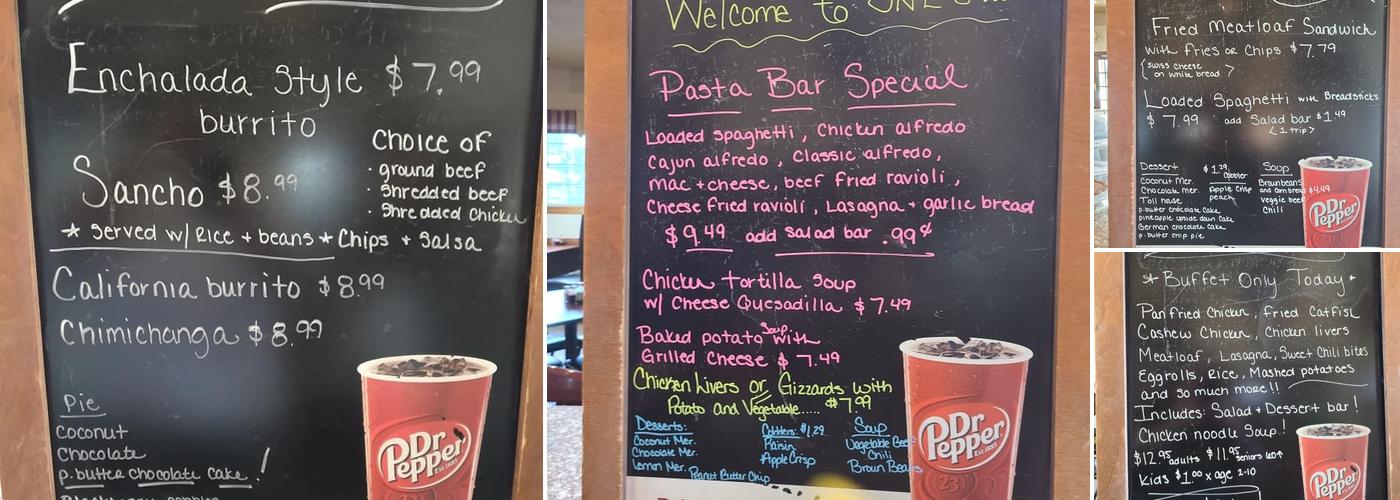 Enchalada Style $7.99
burrito
Choice of
· ground beef
· Shredded beef
· Shredded Chicken
Sancho $8.99
* Served w/ Rice + beans * Chips + Salsa
California burrito $8.99
Chimichanga $8.99
Pie
Coconut
Chocolate
p.butter Chocolate Cake!
Dr Pepper
Est. 1885
23
Welcome to
Pasta Bar Special
Loaded spaghetti, Chicken alfredo
Cajun alfredo, Classic alfredo,
mac + cheese, beef fried ravioli,
Cheese fried ravioli, Lasagna + garlic bread
$9.49 add salad bar .99¢
Chicken tortilla Soup
w/ Cheese Quesadilla $7.49
Baked potato Soup with
Grilled Cheese $7.49
Chicken Livers or Gizzards with
Potato and Vegetable..... $7.99
Desserts:
Coconut Mer.
Chocolate Mer.
Lemon Mer.
Peanut Butter Chip
Cobblers: $1.29
Raisin
Apple Crisp
Soup
Vegetable Beef
Chili
Brown Beans
Dr Pepper
Est. 1885
23
Fried Meatloaf Sandwich
with fries or Chips $7.79
(Swiss cheese
on white bread)
Loaded Spaghetti with Breadsticks
$7.99 add Salad bar $1.49
<1 trip>
Dessert
Coconut Mer.
Chocolate Mer.
Toll house
p.butter chocolate cake
pineapple upside down cake
German chocolate cake
p.butter chip pie
$1.29
Cobbler
Apple Crisp
peach
Soup
Brownbeans
and cornbread $4.49
Veggie beef
Chili
Dr Pepper
23
* Buffet Only Today *
Pan fried Chicken, fried Catfish
Cashew Chicken, Chicken livers
Meatloaf, Lasagna, Sweet Chili bites
Eggrolls, Rice, Mashed potatoes
and so much more!!
Includes: Salad + Dessert bar!
Chicken noodle Soup!
$12.95 adults $11.95 seniors 60↑
Kids $1.00 x age 2-10
Dr Pepper